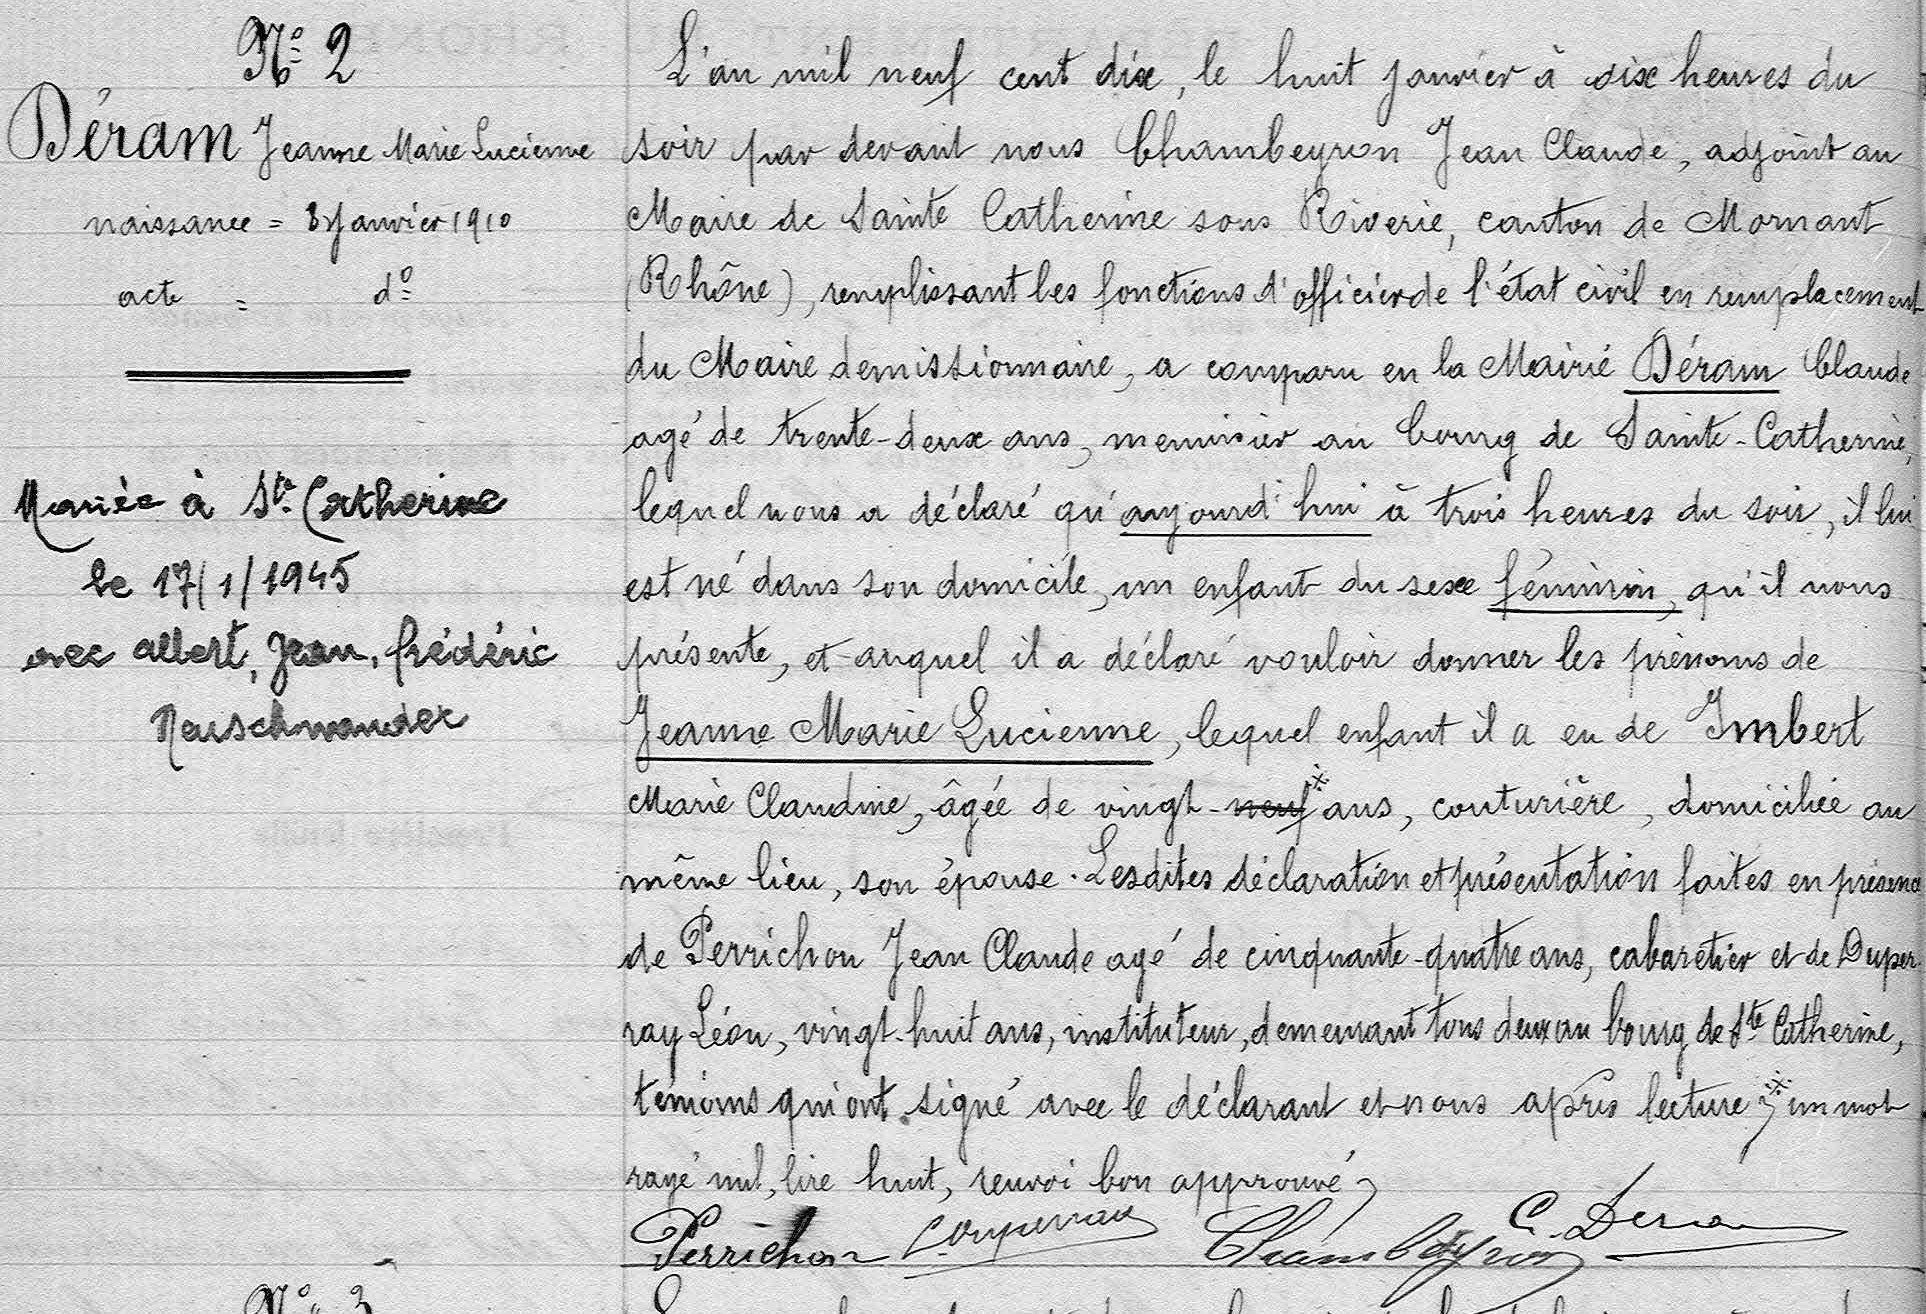 N° 2
Déram Jeanne Marie Lucienne
naissance = 8 Janvier 1910
acte = d°
Mariée à Ste Catherine
le 17/1/1945
avec Albert, Jean, Frédéric
Neuschwander
L'an mil neuf cent dix, le huit janvier à six heures du
soir par devant nous Chambeyron Jean Claude, adjoint au
Maire de Sainte Catherine sous Riverie, canton de Mornant
(Rhône), remplissant les fonctions d'officier de l'état civil en remplacement
du Maire demissionnaire, a comparu en la Mairie Déram Claude
agé de trente-deux ans, menuisier au bourg de Sainte-Catherine,
lequel nous a déclaré qu'aujourd'hui à trois heures du soir, il lui
est né dans son domicile, un enfant du sexe féminin, qu'il nous
présente, et auquel il a déclaré vouloir donner les prénoms de
Jeanne Marie Lucienne, lequel enfant il a eu de Imbert
Marie Claudine, âgée de vingt-neuf ans, couturière, domiciliée au
même lieu, son épouse. Lesdites déclaration et présentation faites en présence
de Perrichon Jean Claude agé de cinquante-quatre ans, cabaretier et de Duper-
ray Léon, vingt-huit ans, instituteur, demeurant tous deux au bourg de Ste Catherine,
témoins qui ont signé avec le déclarant et nous après lecture, un mot
rayé nul, lire huit, renvoi bon approuvé,
Perrichon L. Duperray Chambeyron C. Deram
N° 3